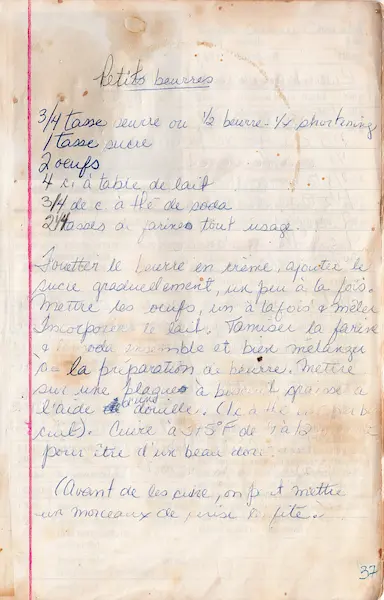 Petits beurres
3/4 tasse beurre ou 1/2 beurre - 1/4 shortening
1 tasse sucre
2 oeufs
4 c. à table de lait
3/4 de c. à thé de soda
2 1/4 tasses de farine tout usage.
Fouetter le beurre en crème, ajouter le
sucre graduellement, un peu à la fois.
Mettre les oeufs, un à la fois & mêler
Incorporer le lait. Tamiser la farine
& soda ensemble et bien mélanger
à la préparation de beurre. Mettre
sur une plaque à biscuit graissée à
l'aide d'une douille. (1 c. à thé
). Cuire à 375°F de
pour être d'un beau doré.
(Avant de les cuire, on peut mettre
un morceaux de cerise
37